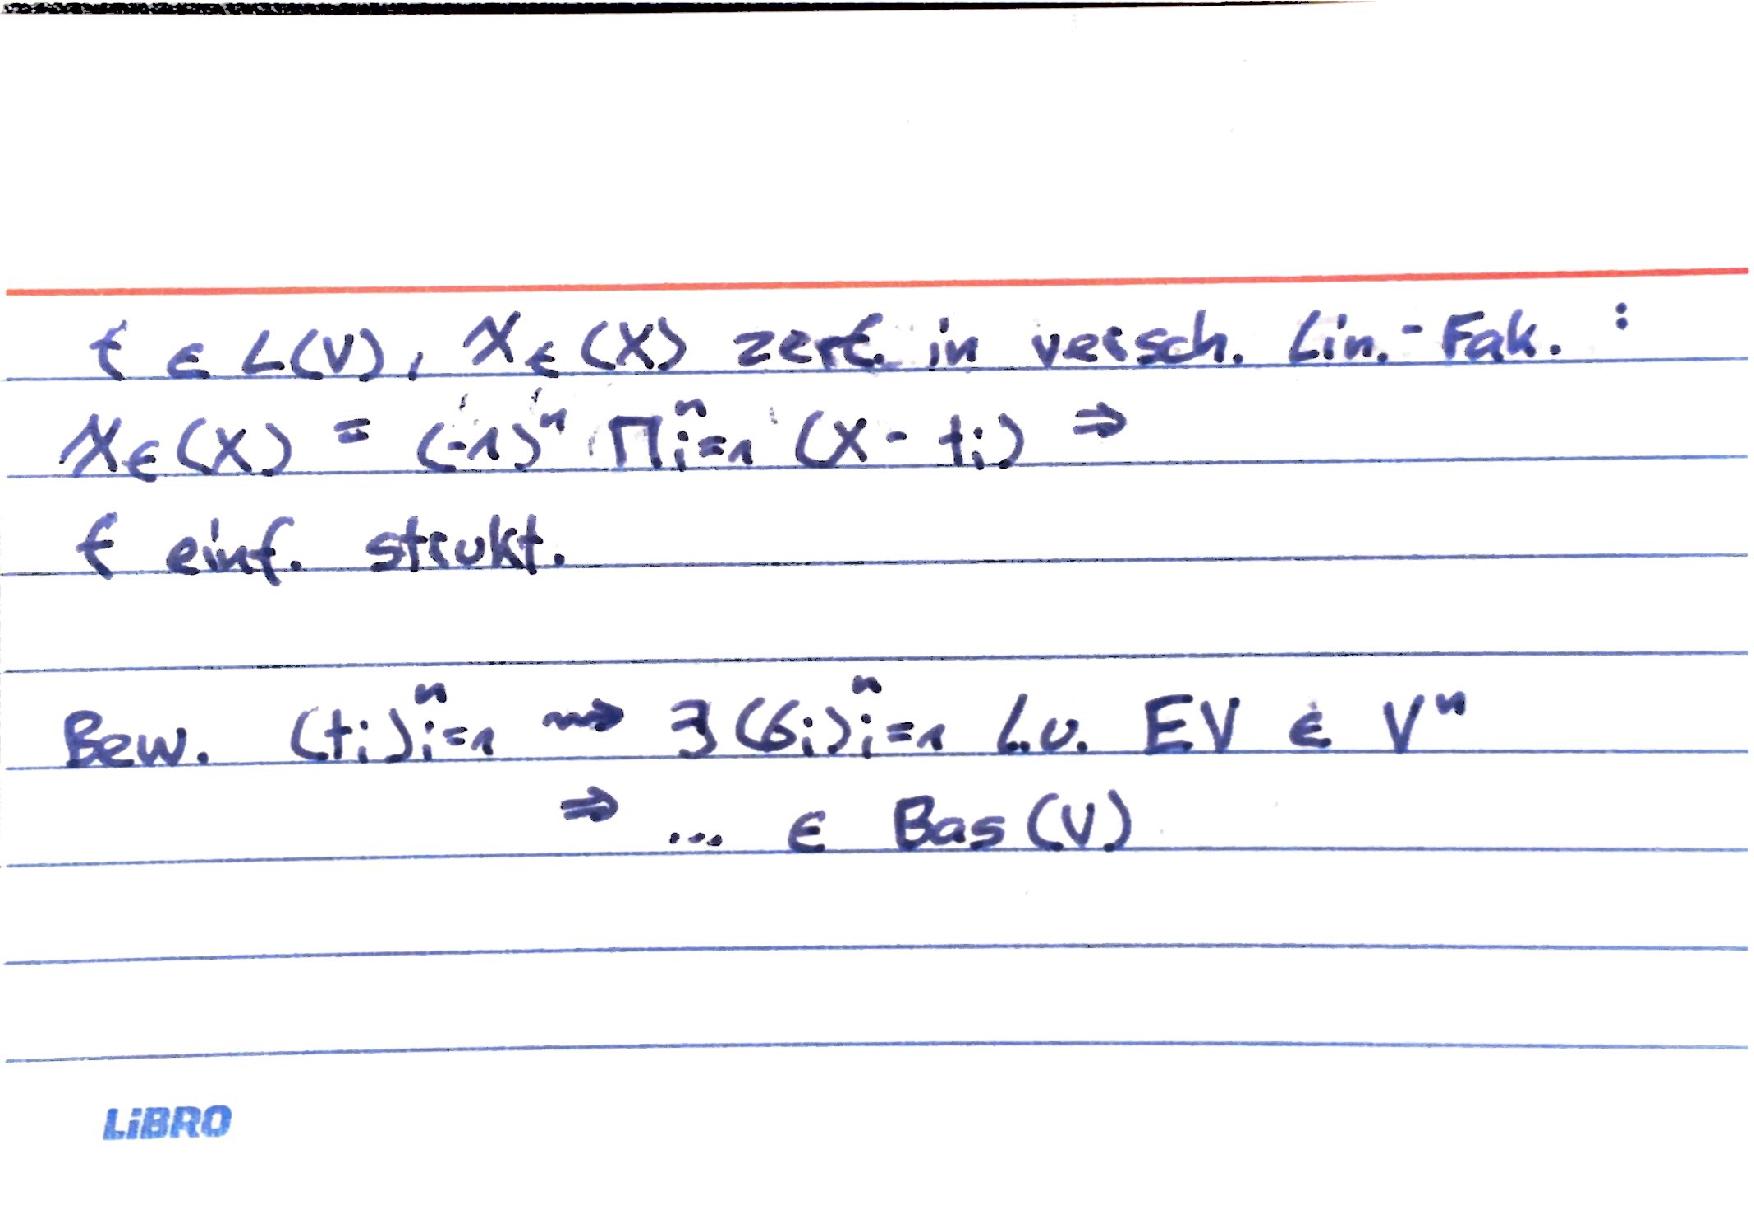 f ∈ L(V), χ_f(X) zerf. in versch. Lin.-Fak. :
χ_f(X) = (-1)^n ∏_{i=1}^n (X - t_i) ⇒
f einf. strukt.
Bew. (t_i)_{i=1}^n ⇝ ∃ (b_i)_{i=1}^n l.u. EV ∈ V^n
⇒ ... ∈ Bas(V)
LiBRO